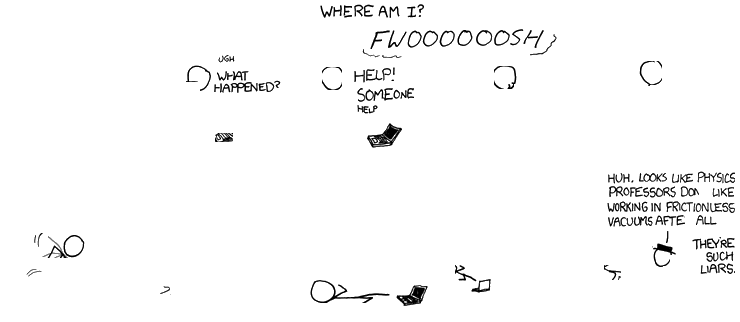 WHERE AM I?
FWOOOOOOSH
UGH
WHAT
HAPPENED?
HELP!
SOMEONE
HELP
HUH. LOOKS LIKE PHYSICS
PROFESSORS DON LIKE
WORKING IN FRICTIONLESS
VACUUMS AFTE ALL
THEY'RE
SUCH
LIARS.